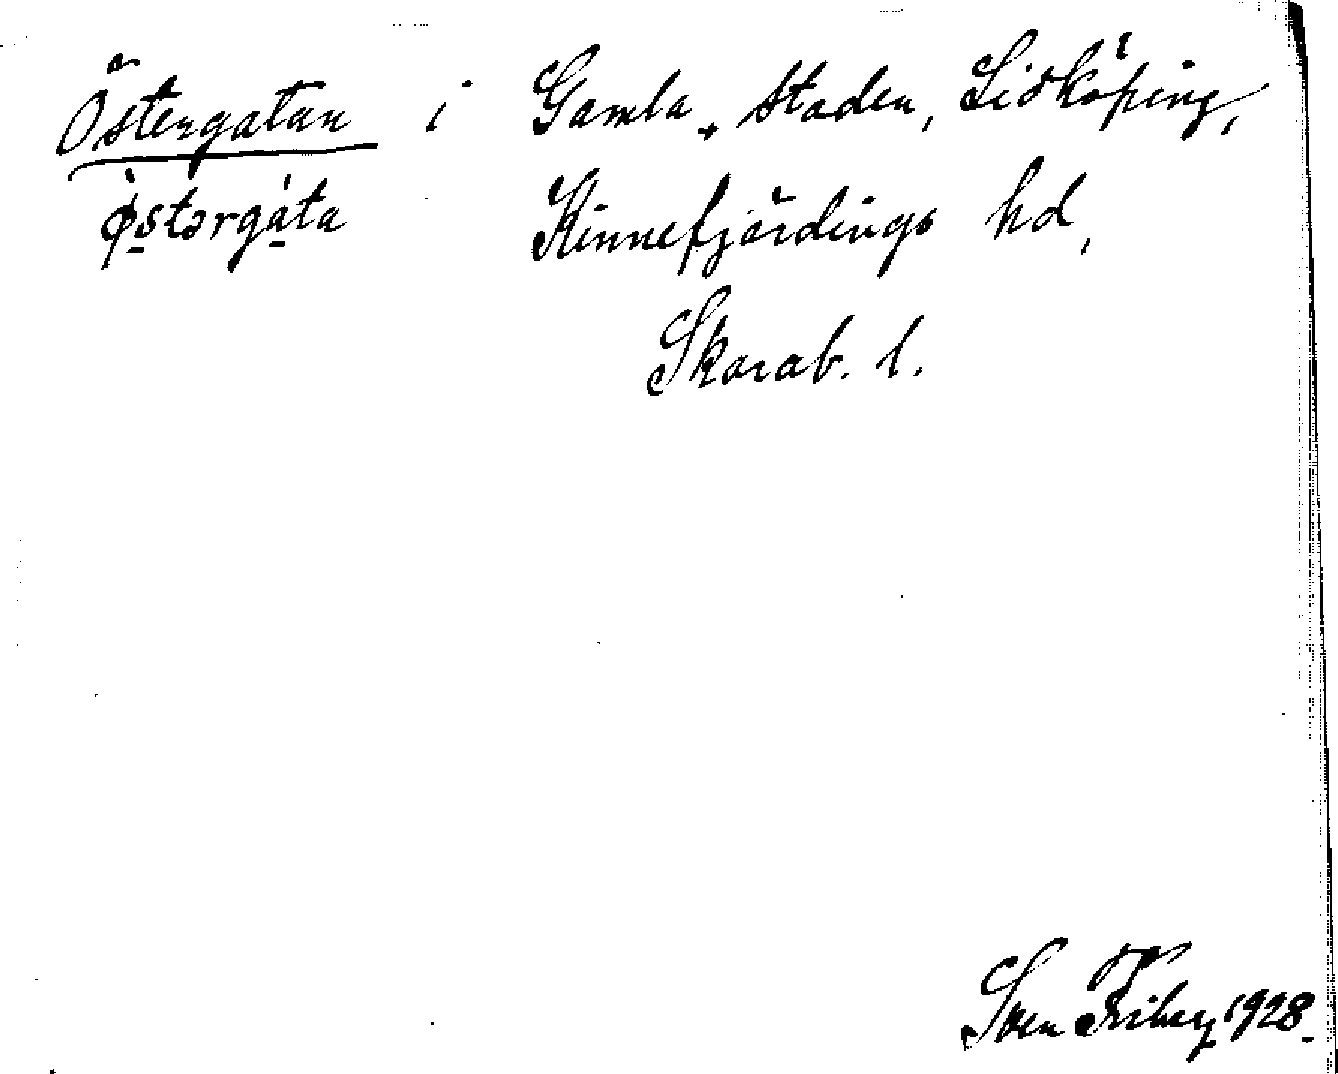 Östergatan i Gamla staden, Lidköping,
ø̀stərgáta Kinnefjärdings hd,
Skarab. l.
Sven Friberg 1928.